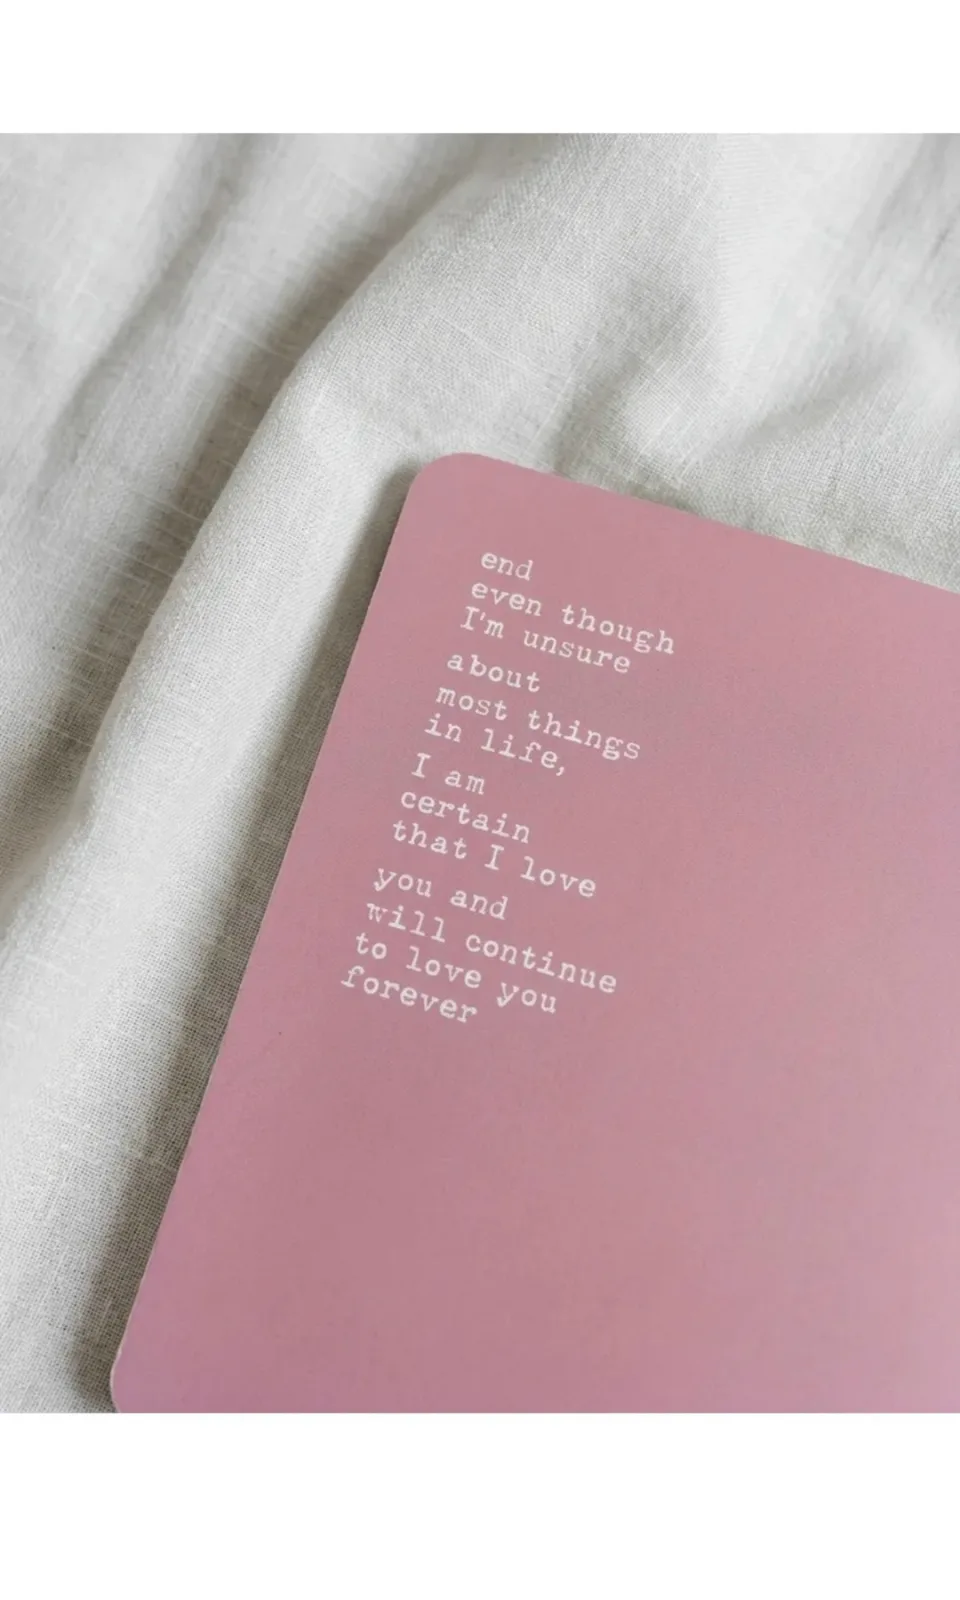 end
even though
I'm unsure
about
most things
in life,
I am
certain
that I love
you and
will continue
to love you
forever